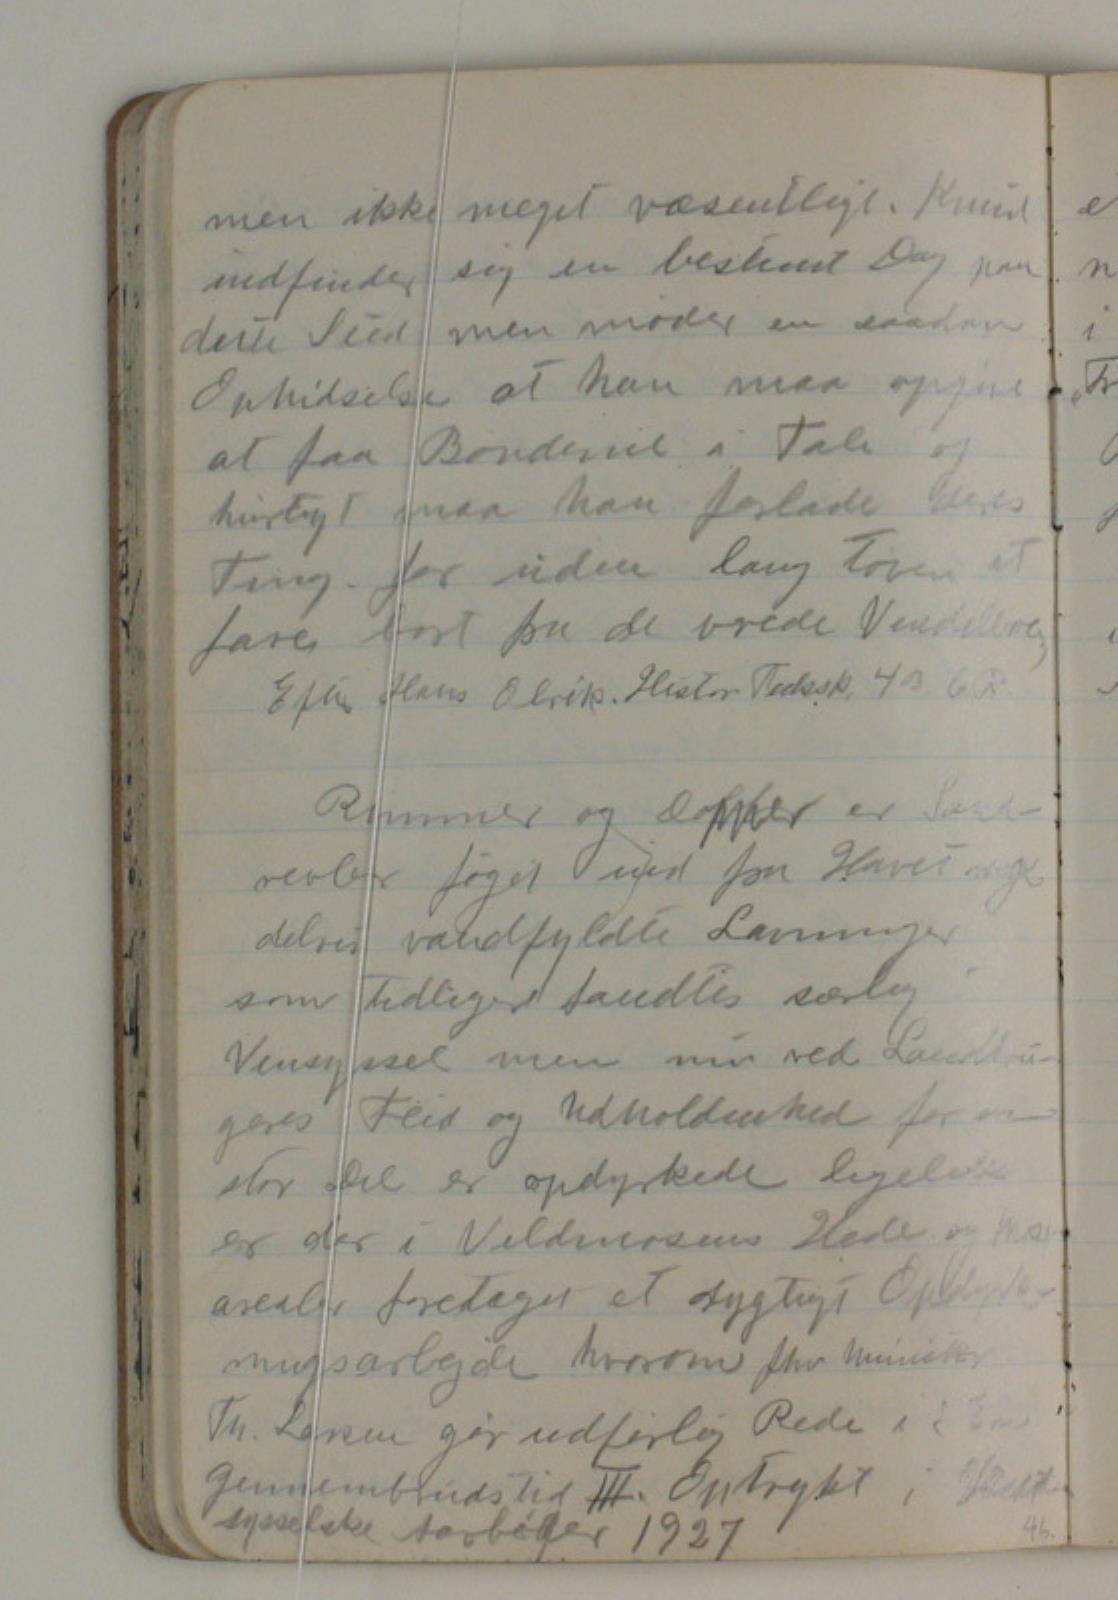 men ikke meget væsentligt. Knud
indfinder sig en bestemt Dag paa
dette Sted men møder en saadan
Ophidselse at han maa opgive
at faa Bønderne i Tale og
hurtigt maa han forlade deres
Ting. for uden lang Tøven at
fare bort fra de vrede Vendelboer
Efter Hans Olrik. Histor. Tidssk. 4 B 6 R.
Rimmer og Dopper er Sand-
revler føget ind fra Havet og
delvis vandfyldte Lavninger
som tidligere fandtes særlig i
Vensyssel men nu ved Landbru-
geres Flid og Udholdenhed for en
stor Del er opdyrkede ligeledes
er der i Vildmosens Hede og Mose
arealer foretaget et dygtigt Opdyrk-
ningsarbejde hvorom fhv Minister
Th. Larsen gør udførlig Rede i : En
Gennembrudstid III. Optrykt i Vend
sysselske Aarbøger 1927
46.